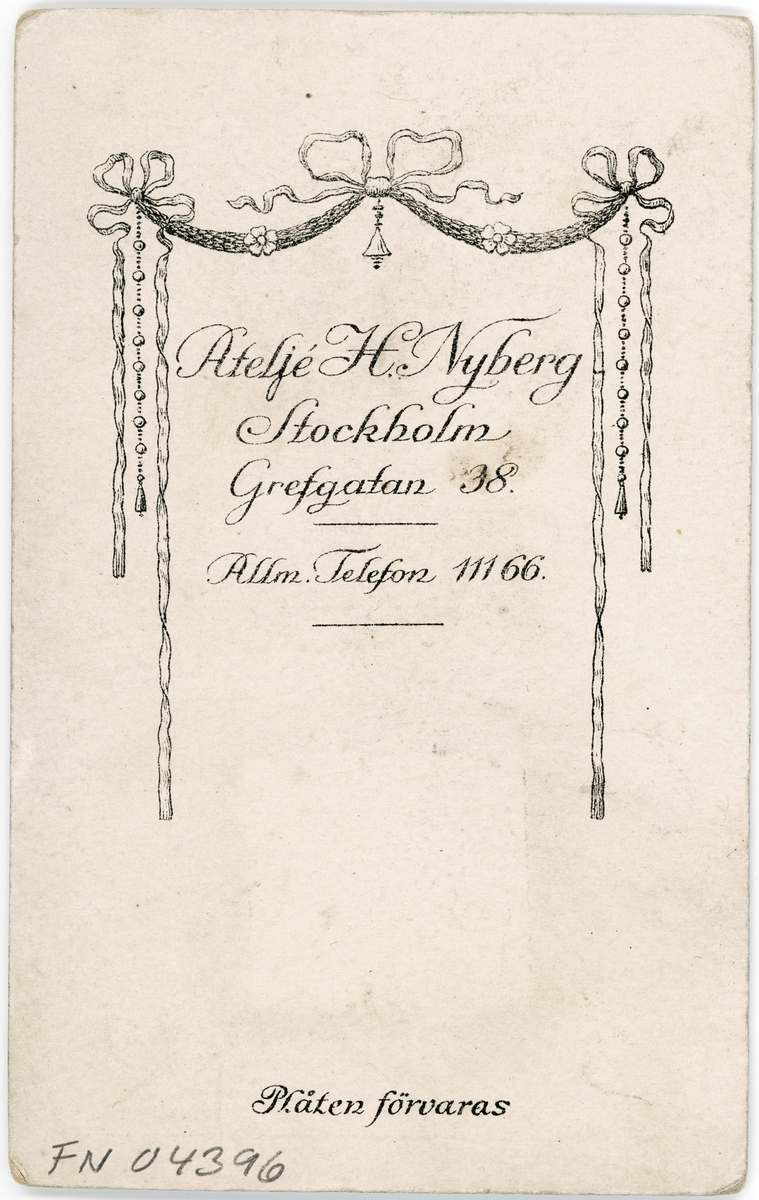 Ateljé H. Nyberg
Stockholm
Grefgatan 38.
Allm. Telefon 111 66.
Plåten förvaras
FN 04396